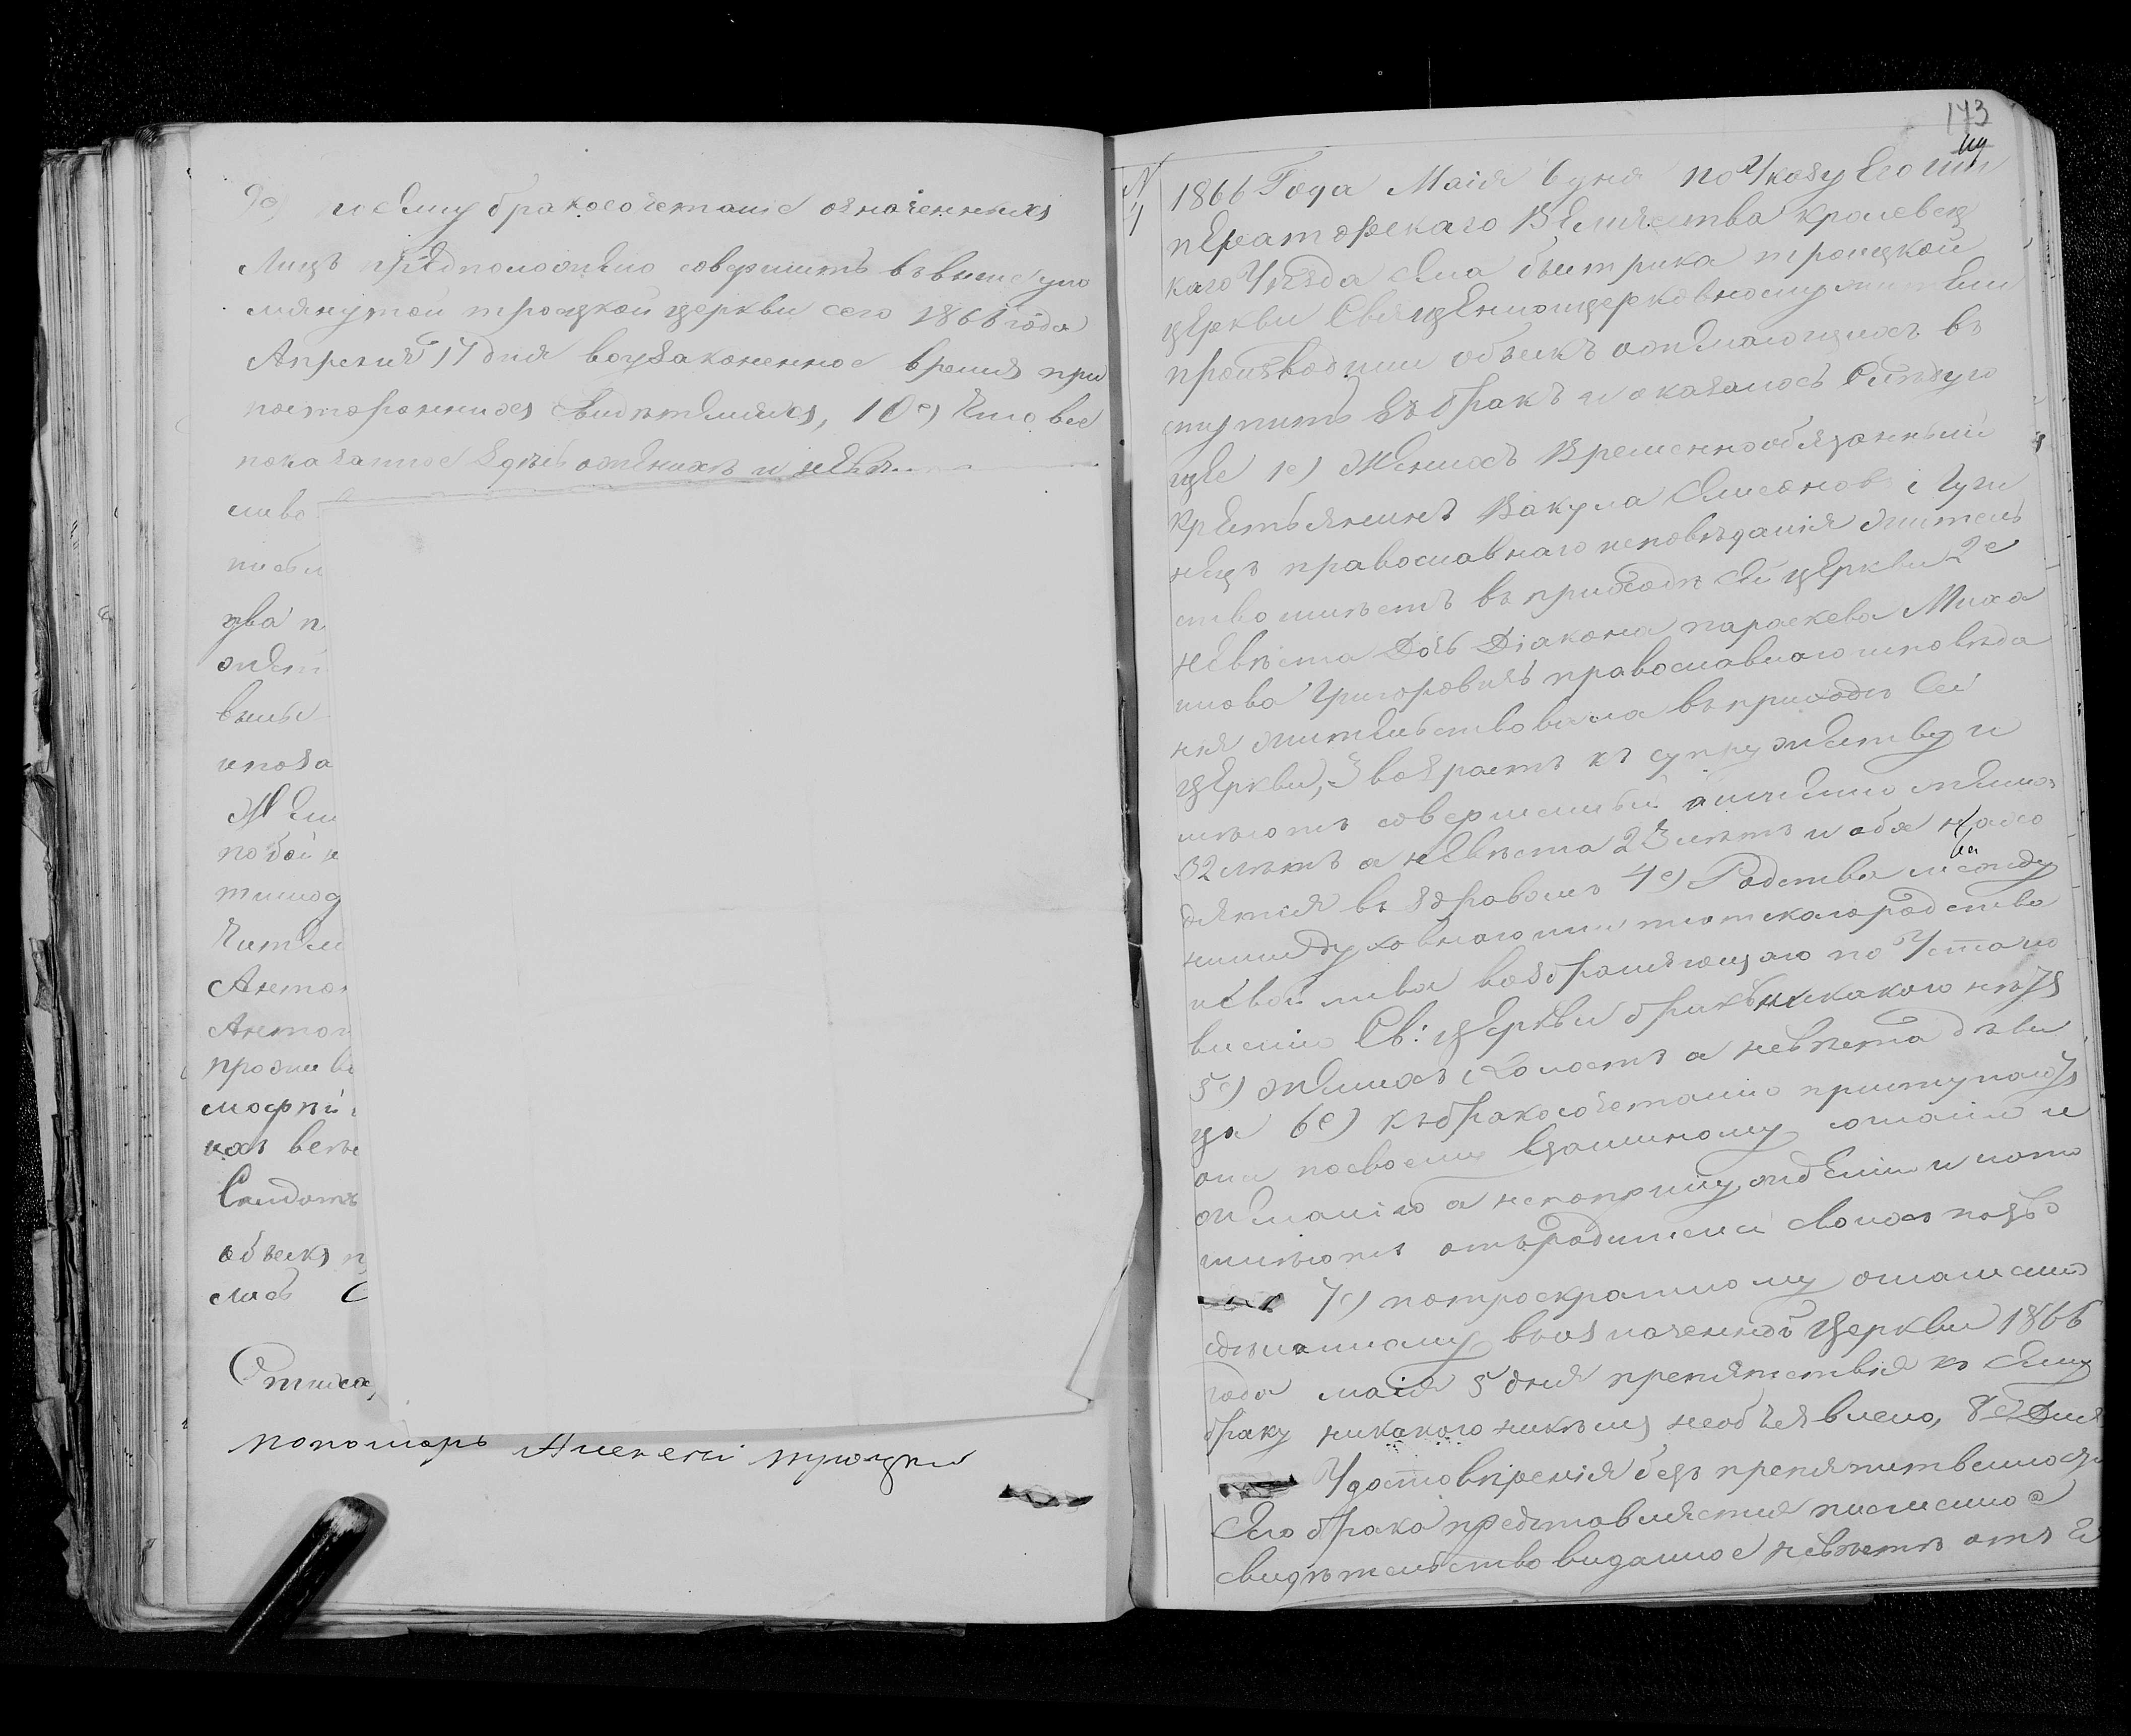 9е) и сему бракосочетаніе означенныхъ
Лицъ предположено совершить въ выше упо
мянутой троицкой церкви сего 1866 года
Апреля 17 дня воузаконенное время при
постороннихъ свидетеляхъ, 10е) Что все
показанное здесь о женихе и невес
пи
два п
выше
показа
по бой
Читал
Антон
Антон
прожив
объискъ п
лись С
пономарь Алексей троицкий
173
N
4
1866 Года Маія 6 дня по Указу Его Им
ператорскаго Величества кролевец
каго Уезда села быстрика троицкой
церкви Священноцерковнослужители
производили объискъ о желающихъ в
ступить въ бракъ и оказалось следую
щее 1е) Женихъ Временнообязанный
крестьянинъ Вакула Симеоновъ Луги
нецъ православнаго исповеданія жител
ство имеетъ въ приходе сей церкви 2е
невеста Дочь Діакона параскева Миха
илова Григоровичъ православнаго исповеда
нія жительствовала въ приходе сей
церкви, 3 возрастъ къ супружеству и
меютъ совершенный а именно женихъ
32 летъ а невеста 23 летъ и оба нахо
дятся въ здравомъ 4е) Родства между
ними духовнаго или плотскаго родства
и свойства возбраняющаго по Устано
вленію Св: церкви бракъ никакого нетъ
5е) женихъ холостъ а невеста деви
ца 6е) къ бракосочетанію приступаютъ
они по своему взаимному согласію и
желанію а не по принужденію и на то
имеютъ отъ родителей своихъ позво
7е) по троекратному оглашенію
сделанному въ означенной Церкви 1866
года маія 5 дня препятствія къ сему
браку никакого никемъ необъявлено, 8е Для
Удостоверенія безпрепятственности
сего брака представляется письменное
свидетельство виданное невесте отъ Ея